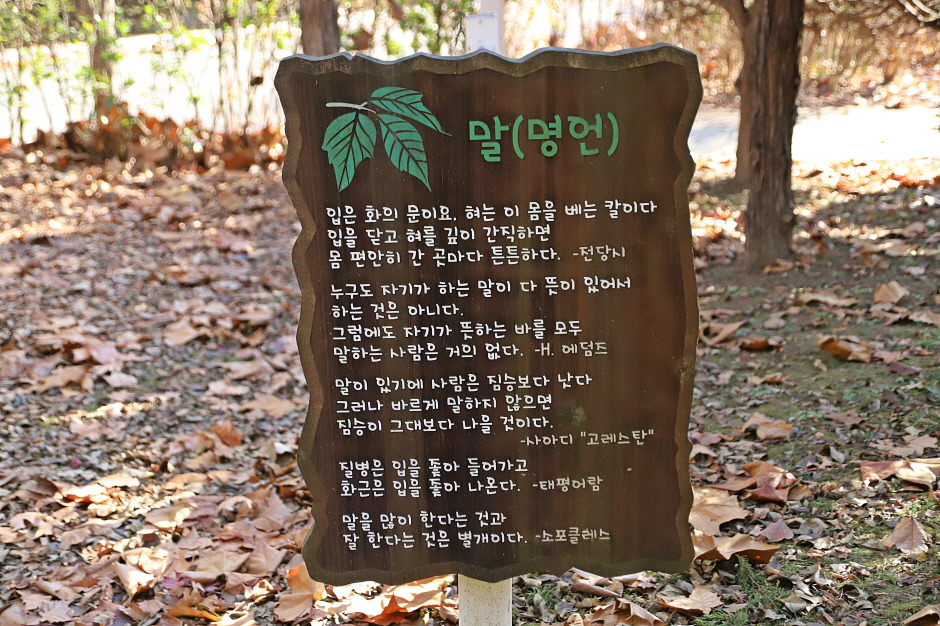 말(명언)
입은 화의 문이요, 혀는 이 몸을 베는 칼이다
입을 닫고 혀를 깊이 간직하면
몸 편안히 간 곳마다 튼튼하다. -전당시
누구도 자기가 하는 말이 다 뜻이 있어서
하는 것은 아니다.
그럼에도 자기가 뜻하는 바를 모두
말하는 사람은 거의 없다. -H. 에덤즈
말이 있기에 사람은 짐승보다 낫다
그러나 바르게 말하지 않으면
짐승이 그대보다 나을 것이다.
-사아디 "고레스탄"
질병은 입을 좇아 들어가고
화근은 입을 좇아 나온다. -태평어람
말을 많이 한다는 것과
잘 한다는 것은 별개이다. -소포클레스